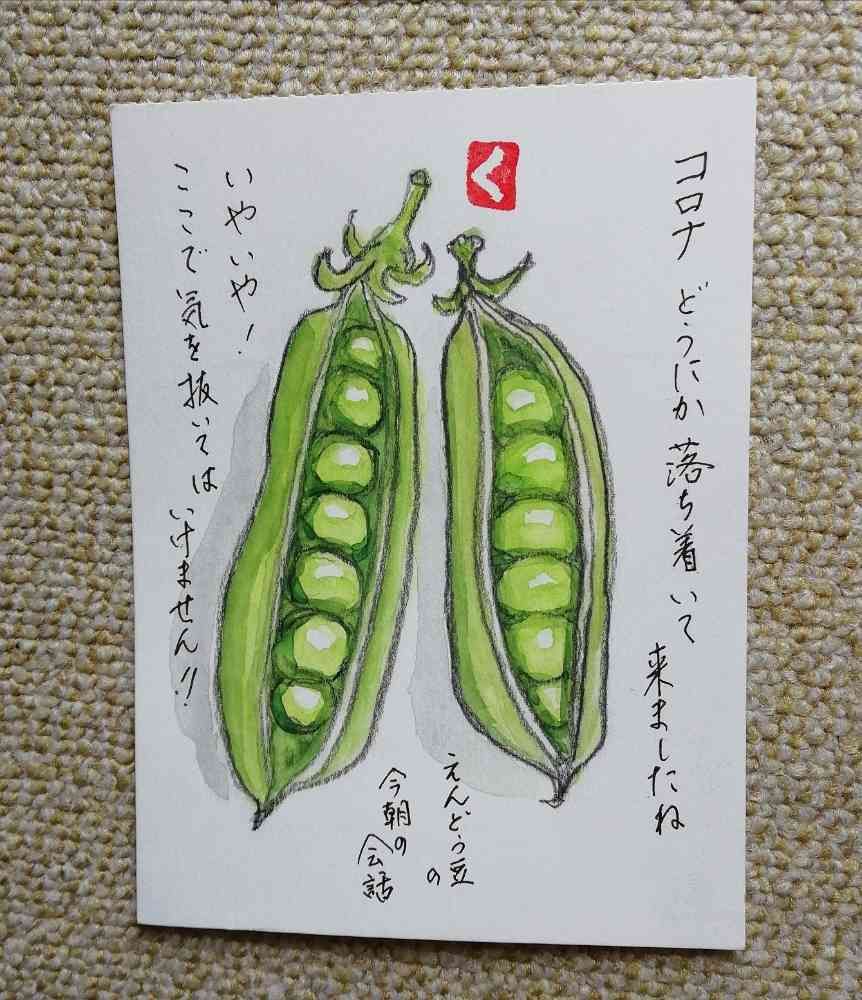 コロナ どうにか 落ち着いて
来ましたね
く
いやいや!
ここで気を抜いては いけません!!
えんどう豆の
今朝の
会話